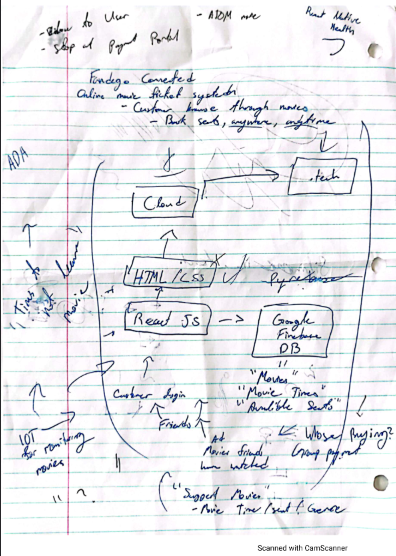 - Show to User
- Stop at Payment Portal
- ATOM note
React Native
Health
Fandego Connected
Online movie ticket system
- Customer browse through movies
- Book seats, anywhere, anytime
ADA
Cloud
.tech
"Time to
movie
HTML/CSS
React JS
Google
Firebase
DB
"Movies"
"Movie Times"
"Availible Seats"
Customer login
Friends
Ad
Movies friends
have watched
Whose Buying?
Group payment
IOT
for
movies
" ?
"Suggest Movies"
- Movie Time / Seat / Genre
Scanned with CamScanner